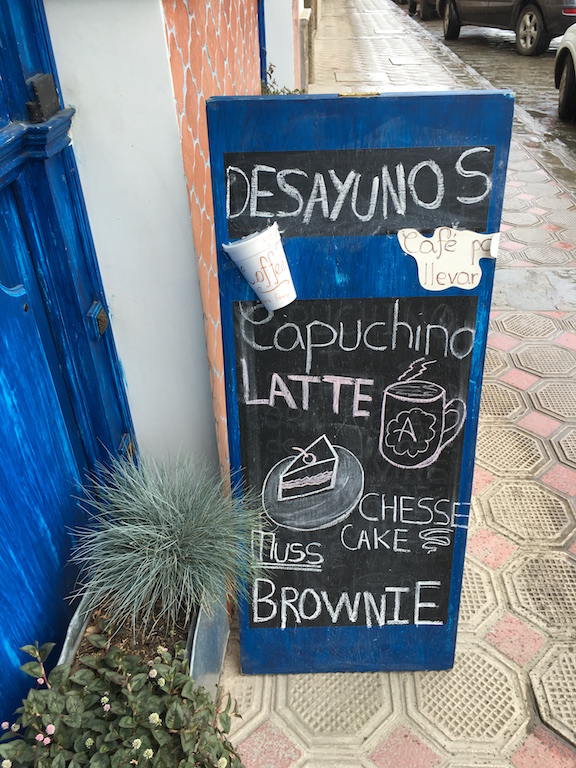 DESAYUNOS
Coffee
Café pa
llevar
Capuchino
LATTE
A
CHESSE
CAKE
MUSS
BROWNIE